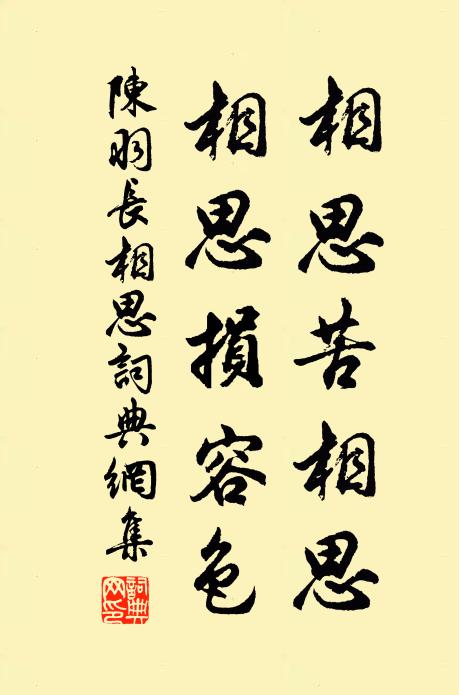 相思苦相思
相思損容色
陳羽長相思詞典網集
詞典
网印